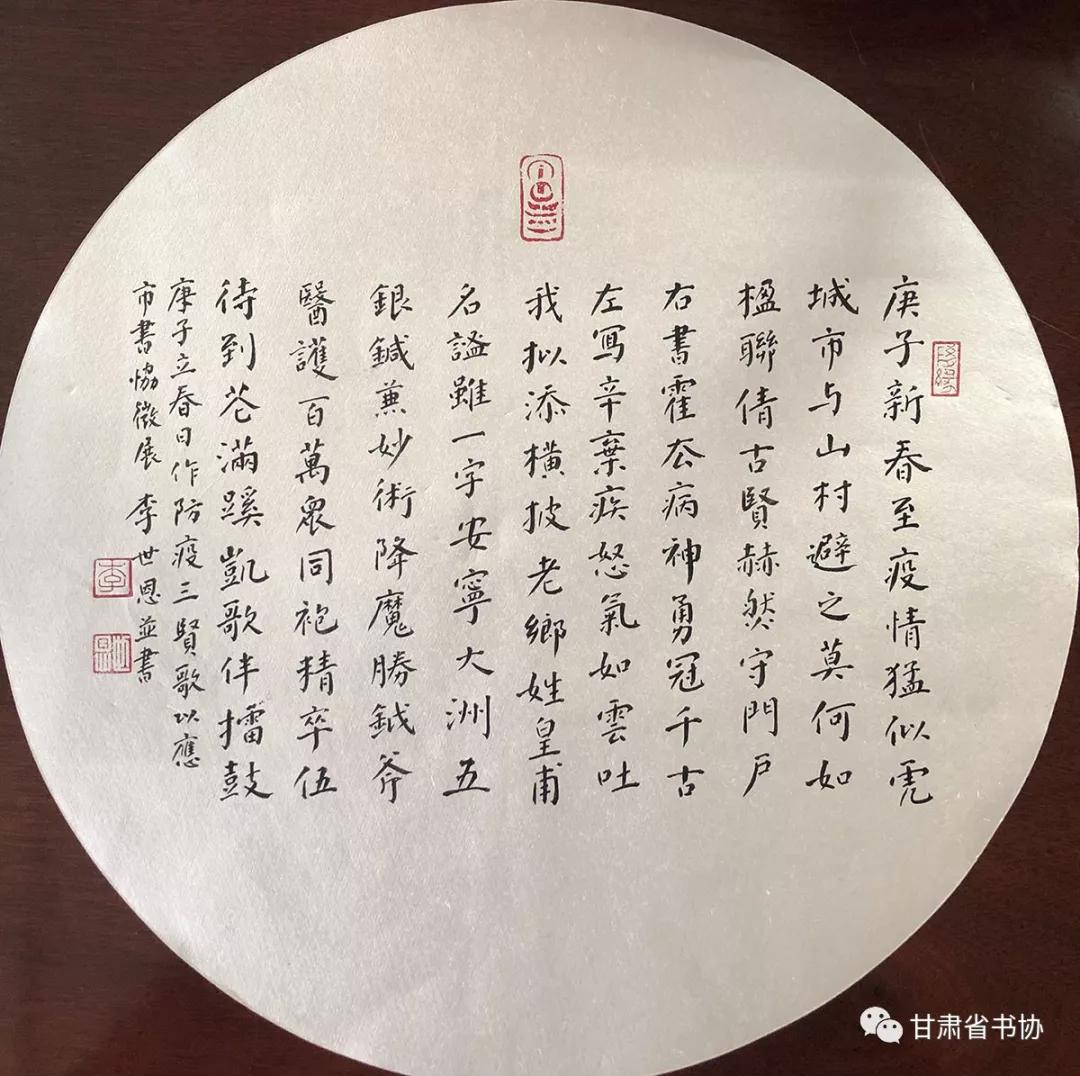 庚子新春至疫情猛似虎
城市与山村避之莫何如
楹聯倩古賢赫然守門戶
右書霍厺病神勇冠千古
左寫辛棄疾怒氣如雲吐
我拟添橫披老鄉姓皇甫
名謐雖一字安寧大洲五
銀鍼兼妙術降魔勝鉞斧
醫護百萬眾同袍精卒伍
待到花滿蹊凱歌伴擂鼓
庚子立春日作防疫三賢歌以應
市書恊徵展 李世恩並書
李
甘肃省书协